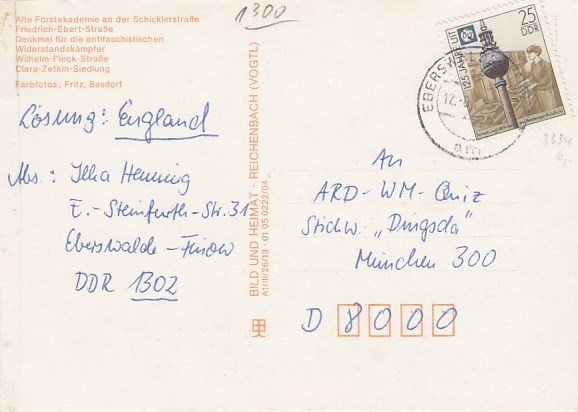 1300
Alte Forstakademie an der Schicklerstraße
Friedrich-Ebert-Straße
Denkmal für die antifaschistischen
Widerstandskämpfer
Wilhelm-Pieck-Straße
Clara-Zetkin-Siedlung
Farbfotos: Fritz, Basdorf
Lösung: England
Abs.: Ilka Henning
E.-Steinfurth-Str. 31
Eberswalde-Finow
DDR 1302
BILD UND HEIMAT · REICHENBACH (VOGTL)
A1/III/26/13 01 05 0222/04
25
DDR
125 JAHRE
EBERSW
3334
6,-
An
ARD-WM-Quiz
Stichw. „Dingsda"
München 300
D 8000